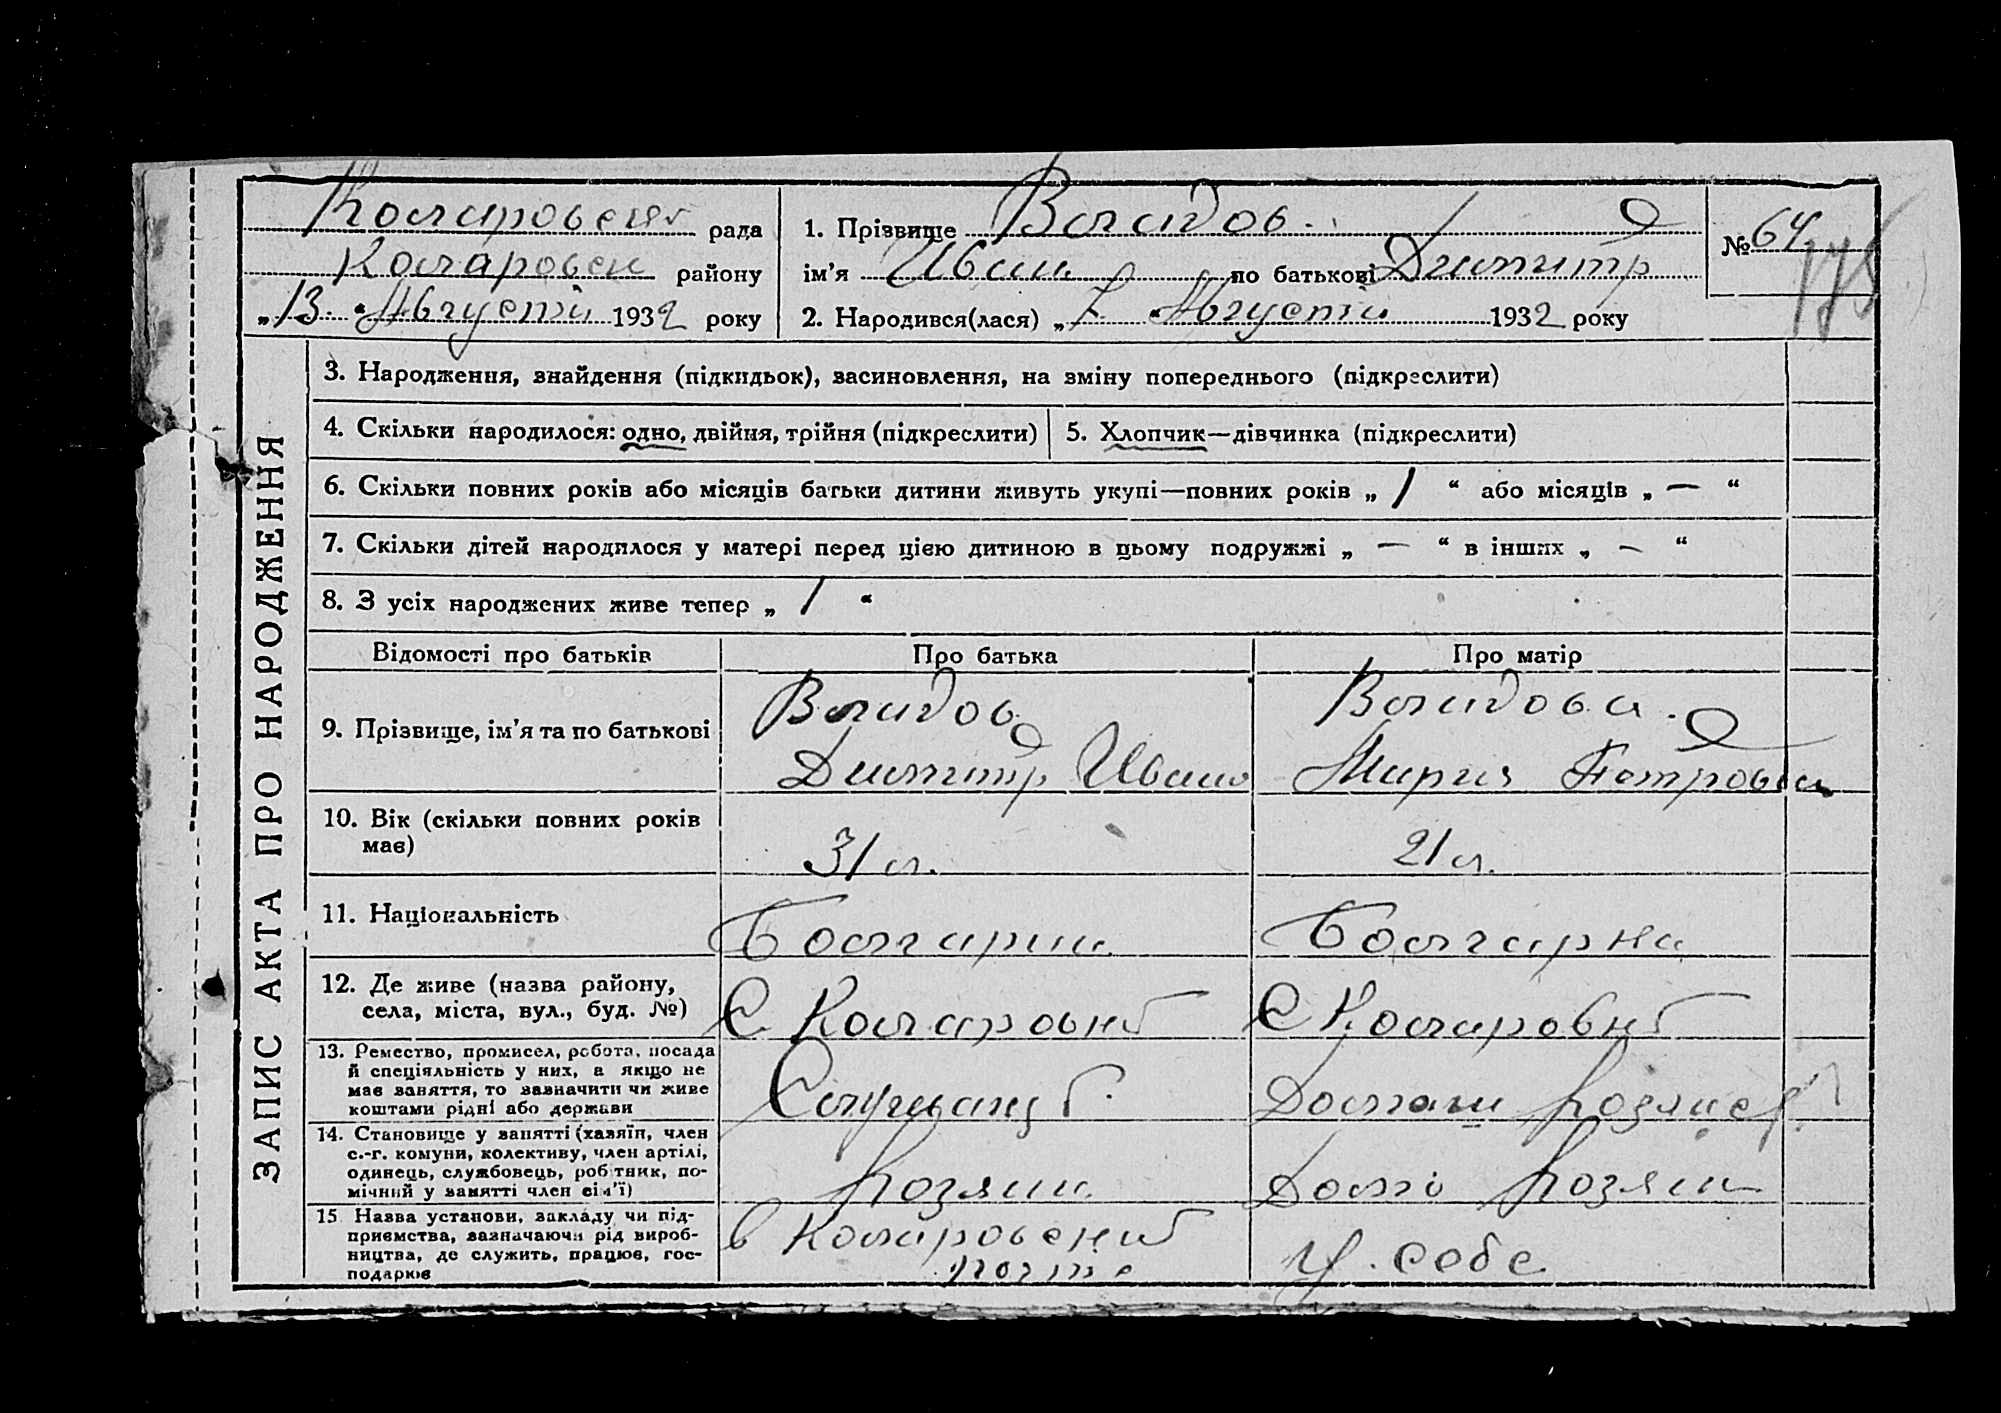 Коларовска рада
Коларовск району
„13" Августа 1932 року
1. Прізвище Влидов
ім'я Иван по батькові Димитр
2. Народився(лася) „7" Августа 1932 року
№ 64
ЗАПИС АКТА ПРО НАРОДЖЕННЯ
3. Народження, знайдення (підкидьок), засиновлення, на зміну попереднього (підкреслити)
4. Скільки народилося: одно, двійня, трійня (підкреслити)
5. Хлопчик—дівчинка (підкреслити)
6. Скільки повних років або місяців батьки дитини живуть укупі—повних років „ 1 “ або місяців „ — “
7. Скільки дітей народилося у матері перед цією дитиною в цьому подружжі „ — “ в інших „ — “
8. З усіх народжених живе тепер „ 1 “
Відомості про батьків Про батька Про матір
9. Прізвище, ім'я та по батькові
Влидов
Димитр Ивано
Влидова
Мария Петровна
10. Вік (скільки повних років має)
31 л. 21 л.
11. Національність
Болгарин Болгарка
12. Де живе (назва району,
села, міста, вул., буд. №)
С Коларовка С Коларовка
13. Ремество, промисел, робота, посада
й спеціяльність у них, а якщо не
має заняття, то зазначити чи живе
коштами рідні або держави
Домаш хозяйс
14. Становище у занятті (хазяїн, член
с.-г. комуни, колективу, член артілі,
одинець, службовець, робітник, по-
мічний у занятті член сім'ї)
хозяин Домо хозяин
15 Назва установи, закладу чи під-
приємства, зазначаючи рід вироб-
ництва, де служить, працює, гос-
подарює
в Коларовский
почте
у себе